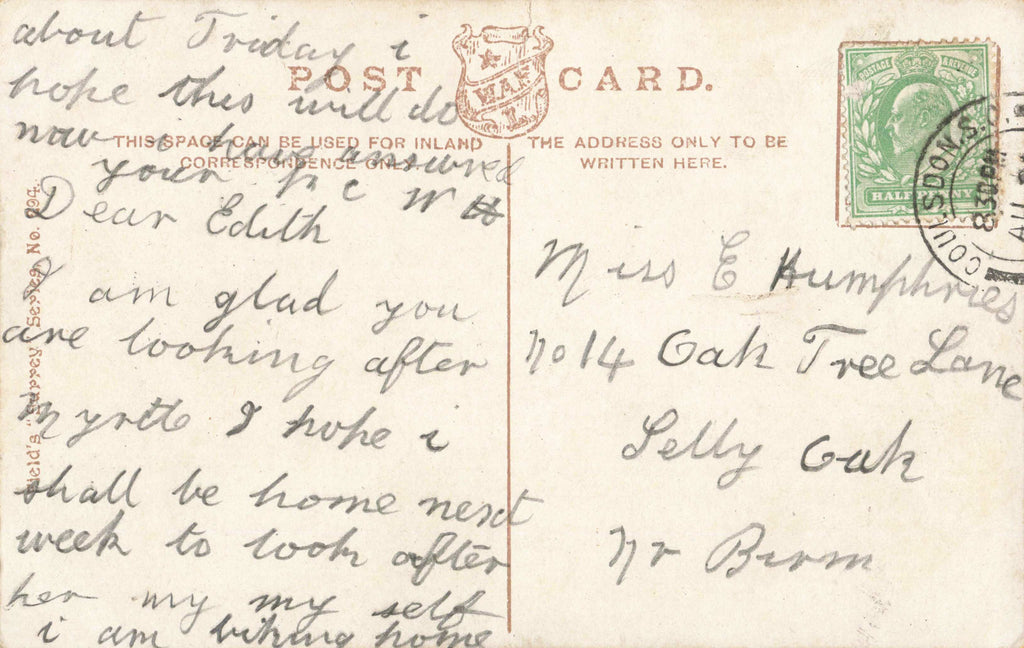 POST CARD.
THIS SPACE CAN BE USED FOR INLAND
CORRESPONDENCE ONLY.
THE ADDRESS ONLY TO BE
WRITTEN HERE.
POSTAGE & REVENUE
HALFPENNY
COULSDON.S.
8.30 PM
AU
Field's "Surrey Series, No. 294.
Dear Edith
I am glad you
are looking after
Myrtle I hope i
shall be home next
week to look after
her my my self
i am biking home
about Friday i
hope this will do
now i have ansured
your p c W H
Miss E Humphries
no 14 Oak Tree Lane
Selly Oak
Nr Birm